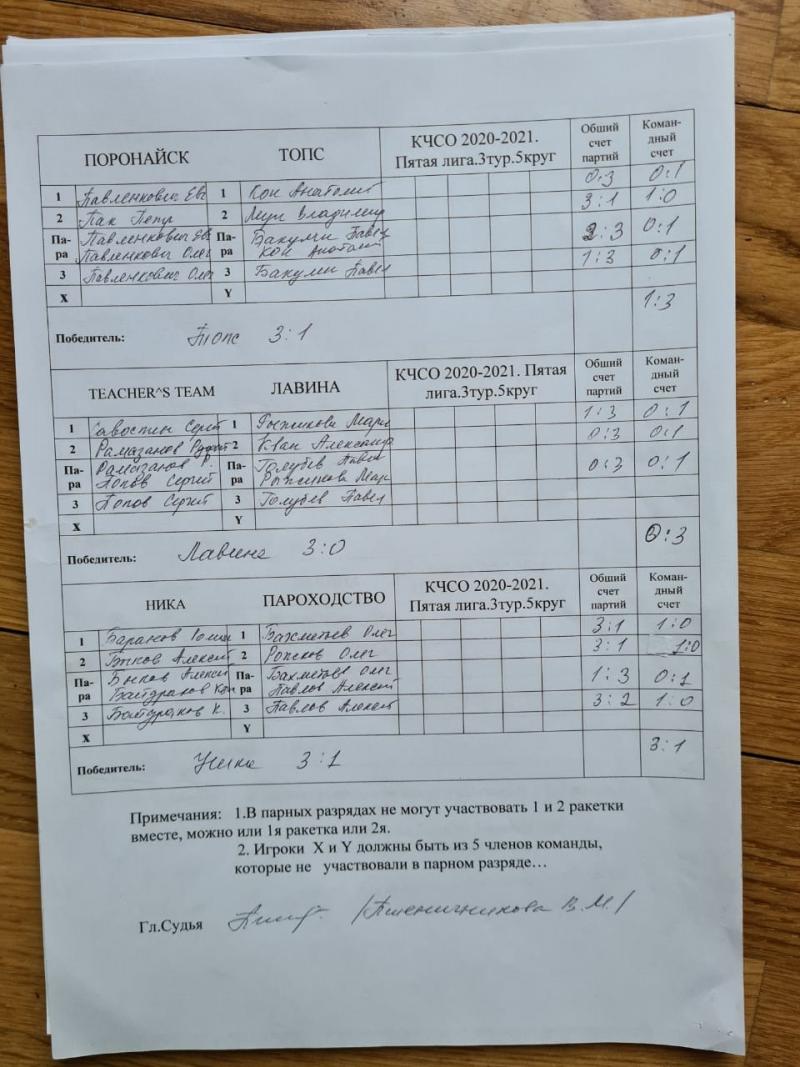 ПОРОНАЙСК ТОПС КЧСО 2020-2021. Пятая лига.3тур.5круг Общий счет партий Коман-дный счет
1 Павленкович Евг 1 Кон Анатолий 0:3 0:1
2 Пак Петр 2 Мун Владимир 3:1 1:0
Па-ра Павленкович Ев Па-ра Бакулин Павел 2:3 0:1
Павленкович Олег Кон Анатолий
3 Павленкович Олег 3 Бакулин Павел 1:3 0:1
X Y 1:3
Победитель: Топс 3:1
TEACHER^S TEAM ЛАВИНА КЧСО 2020-2021. Пятая лига.3тур.5круг Общий счет партий Коман-дный счет
1 Савостин Сергей 1 Рыжикова Мари 1:3 0:1
2 Рамазанов 2 Кван Александр 0:3 0:1
Па-ра Рамазанов Р. Па-ра Голубев Павел 0:3 0:1
Попов Сергей Рыжикова Мар
3 Попов Сергей 3 Голубев Павел
X Y
Победитель: Лавина 3:0 0:3
НИКА ПАРОХОДСТВО КЧСО 2020-2021. Пятая лига.3тур.5круг Общий счет партий Коман-дный счет
1 Баранов 1 Бахметьев Олег 3:1 1:0
2 Быков Алексей 2 Олег 3:1 1:0
Па-ра Быков Алексей Па-ра Бахметьев Олег 1:3 0:1
Байдраков Кон Павлов Алексей
3 Байдраков К. 3 Павлов Алексей 3:2 1:0
X Y
Победитель: Ника 3:1 3:1
Примечания: 1.В парных разрядах не могут участвовать 1 и 2 ракетки
вместе, можно или 1я ракетка или 2я.
2. Игроки X и Y должны быть из 5 членов команды,
которые не участвовали в парном разряде…
Гл.Судья /Пшеничникова В.М./